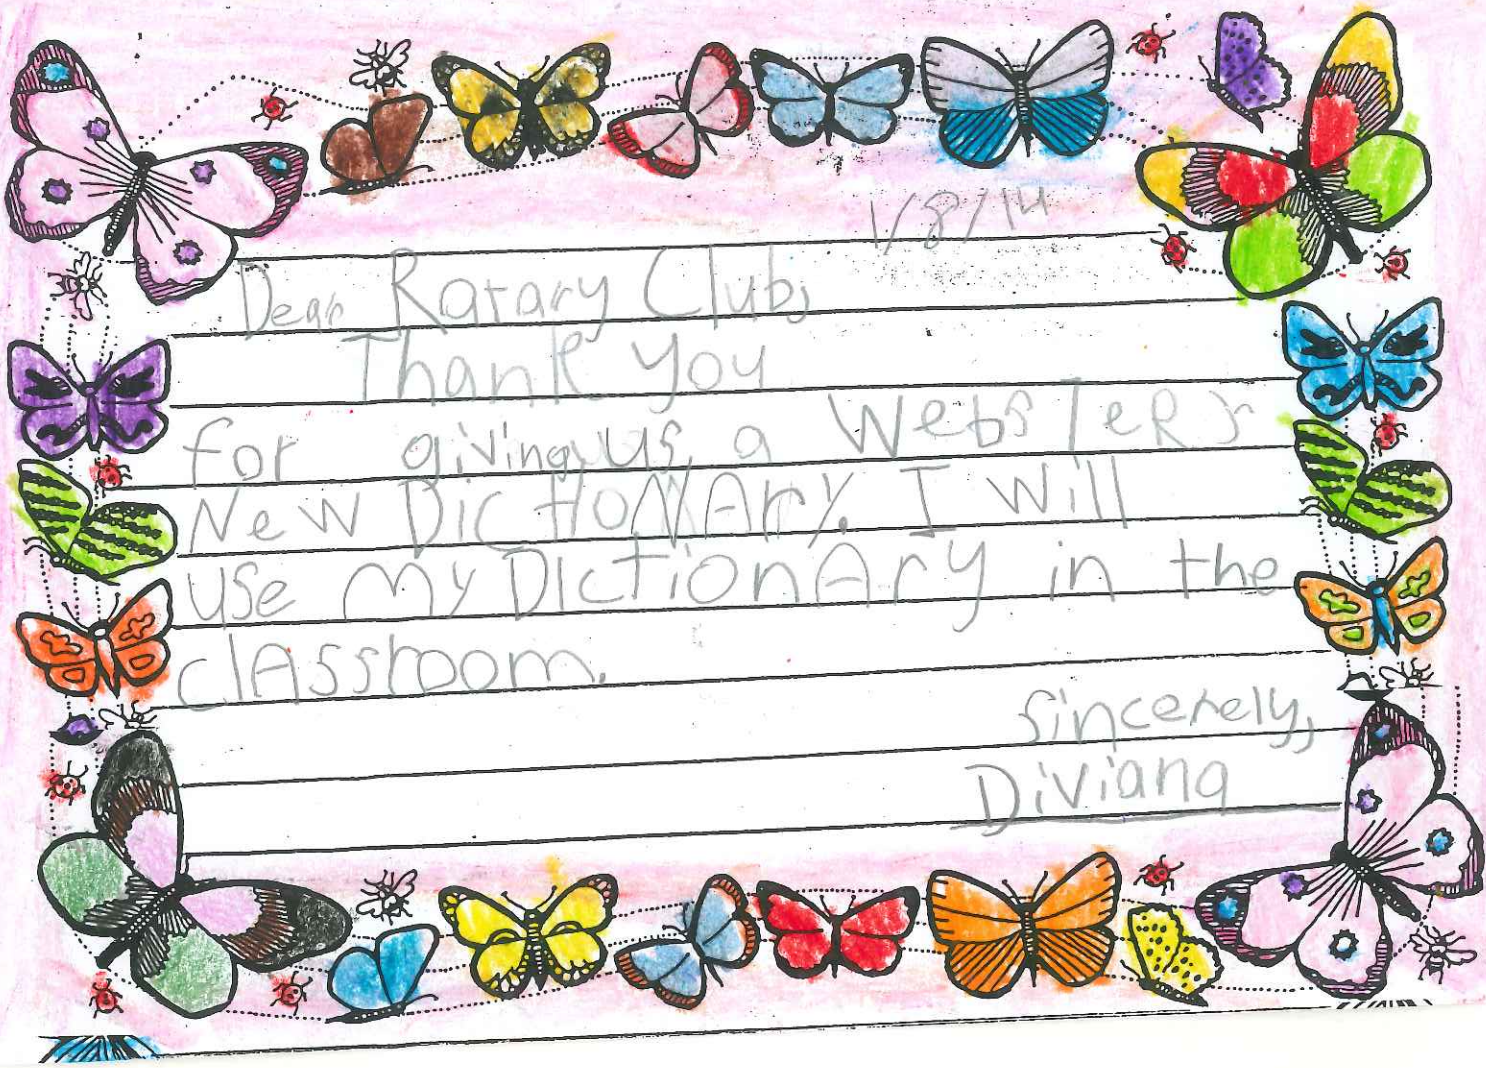 1/8/14
Dear Rotary Club,
Thank you
for giving us a Websters
New DicTioNAry. I will
use my DictionAry in the
clAssroom.
Sincerely,
Diviana